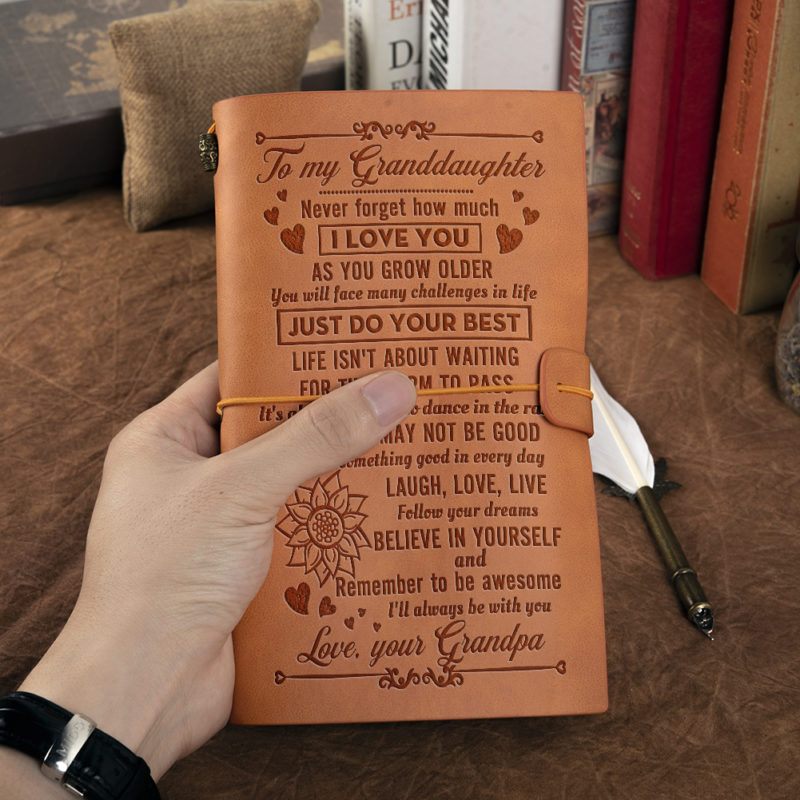 To my Granddaughter
Never forget how much
I LOVE YOU
AS YOU GROW OLDER
You will face many challenges in life
JUST DO YOUR BEST
LIFE ISN'T ABOUT WAITING
FOR TO PASS
It's to dance in the
MAY NOT BE GOOD
something good in every day
LAUGH, LOVE, LIVE
Follow your dreams
BELIEVE IN YOURSELF
and
Remember to be awesome
I'll always be with you
Love, your Grandpa